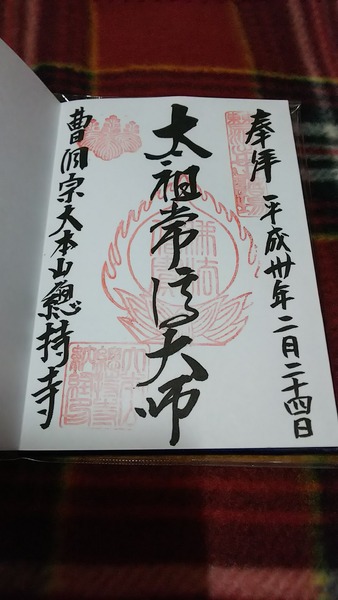 奉拝 平成卅年二月二十四日
太祖常済大師
曹洞宗大本山總持寺